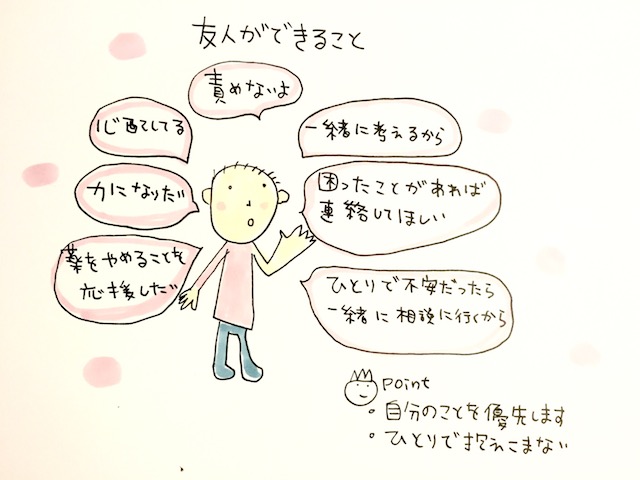 友人ができること
責めないよ
心配してる
一緒に考えるから
力になりたい
困ったことがあれば
連絡してほしい
薬をやめることを
応援したい
ひとりで不安だったら
一緒に相談に行くから
point
・自分のことを優先します
・ひとりで抱えこまない